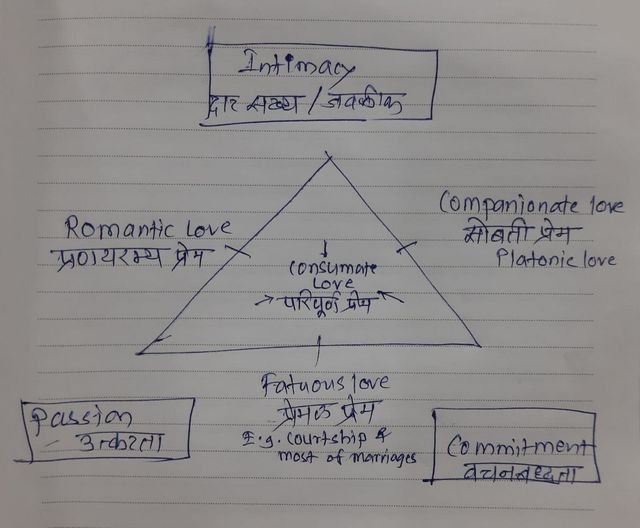 Intimacy
दृाट सख्य / जवळीक
Romantic Love
प्रणयरम्य प्रेम
Companionate love
सोबती प्रेम
Platonic love
Consumate
Love
परिपूर्ण प्रेम
Fatuous love
प्रेम
E.g. courtship &
most of marriages
Passion
उत्कटता
Commitment
वचनबध्दता